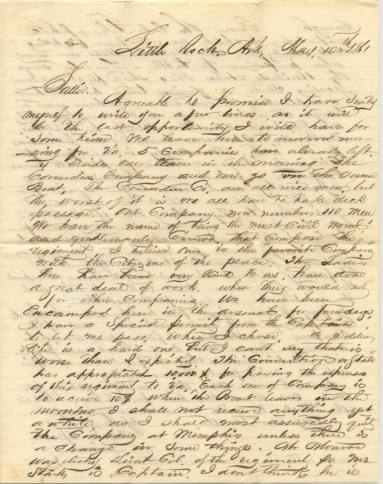 Little Rock, Ark, May, 10th 1861
Sallie.
Agreable to promise I have
myself to write you a few lines, as it will
be the last opportunity I will have for
some time. We leave here to morrow mor
ning for Va, 5 Companies have already left.
beside our leave in the morning. The
Camden Company and we go on the same
Boat, The Camden Co, are all nice men, but
the worst of it is we all have to take deck
passage. Our Company now number 110 men
We have the name of being the most Civil moral
and gentlemanly Crowd, that Compose the
regiment, &
with the Citizens of the place. The Ladies
here has been very kind to us, have done
a great deal of work, when they would not
for other Companies. We have been
Encamped here in the arsenal for
I have a Special permit from the Captain
to let me pass, when I choose. A Soldier
life is a hard one but I can't say that is
worse than I expected. The Convention of State
has appropriated 10,000$ for paying the expenses
of this regiment to Va, Each one of Company is
to receive 10$ when the Boat leaves in the
morning, I shall not receive anything yet
a while, as I should most assuredly quit
the Company at Memphis unless there is
a change in some things. Mr Monroe
was Lieut Col. of the regiment, &
is Captain. I don't think he is